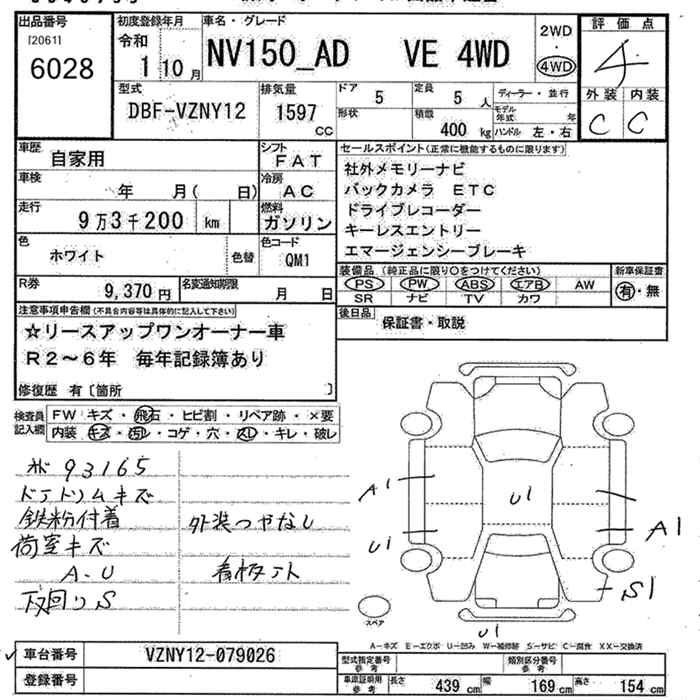 出品番号
[2061]
6028
初度登録年月
令和
1 10 月
車名・グレード
NV150_AD VE 4WD
2WD
4WD
評価点
4
外装 内装
C C
型式
DBF-VZNY12
排気量
1597 CC
ドア
5
形状
定員
5 人
積載
400 kg
ディーラー・並行
モデル年式 年
ハンドル 左・右
車歴
自家用
シフト
FAT
車検
年 月( 日)
冷房
AC
走行
9万3千200 km
燃料
ガソリン
色
ホワイト
色替
色コード
QM1
R券
9,370円
名変通知期限
月 日
セールスポイント(正常に機能するものに限ります)
社外メモリーナビ
バックカメラ ETC
ドライブレコーダー
キーレスエントリー
エマージェンシーブレーキ
装備品(純正品に限り○をつけてください)
PS PW ABS エアB AW
SR ナビ TV カワ
新車保証書
有・無
後日品
保証書・取説
注意事項申告欄(不具合内容等は具体的に記入して下さい)
☆リースアップワンオーナー車
R2～6年 毎年記録簿あり
修復歴 有〔箇所 〕
検査員記入欄
FW キズ・飛石・ヒビ割・リペア跡・×要
内装 キズ・汚レ・コゲ・穴・スレ・キレ・破レ
93165
ドアトリムキズ
鉄粉付着
外装つやなし
荷室キズ
A-U
看板アト
下回りS
A1
U1
U1
A1
S1
U1
スペア
A-キズ E-エクボ U-凹み W-補修跡 S-サビ C-腐食 XX-交換済
車台番号
VZNY12-079026
登録番号
型式指定番号 参考
類別区分番号 参考
車庫証明用 参考
長さ 439 cm 幅 169 cm 高さ 154 cm